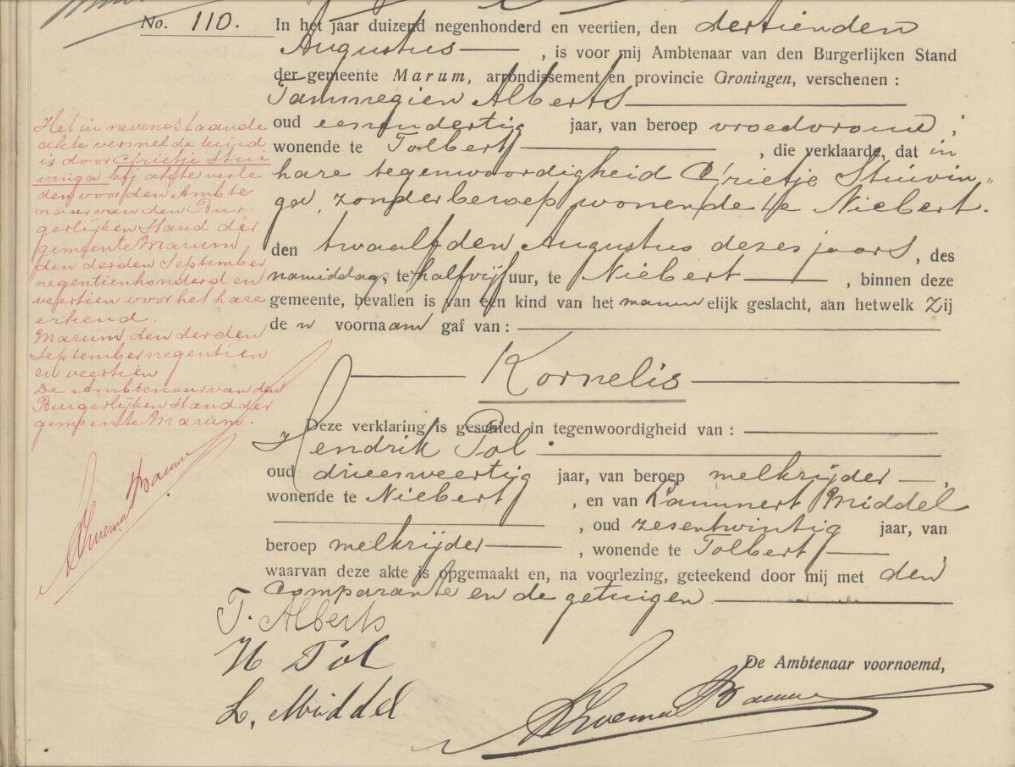 No. 110. In het jaar duizend negenhonderd en veertien, den dertienden
Augustus, is voor mij Ambtenaar van den Burgerlijken Stand
der gemeente Marum, arrondissement en provincie Groningen, verschenen :
Tammegien Alberts
oud eenendertig jaar, van beroep vroedvrouw,
wonende te Tolbert, die verklaarde, dat in
hare tegenwoordigheid Grietje Stuivin„
ga, zonder beroep wonende te Niebert.
den twaalfden Augustus dezes jaars, des
namiddags te half vijf uur, te Niebert, binnen deze
gemeente, bevallen is van een kind van het mannelijk geslacht, aan hetwelk zij
den voornaam gaf van :
Kornelis
Deze verklaring is geschied in tegenwoordigheid van :
Hendrik Tol
oud drieenveertig jaar, van beroep melkrijder,
wonende te Niebert, en van Lammert Middel
, oud zesentwintig jaar, van
beroep melkrijder, wonende te Tolbert,
waarvan deze akte is opgemaakt en, na voorlezing, geteekend door mij met den
Comparante en de getuigen
T. Alberts
H Tol
L. Middel
De Ambtenaar voornoemd,
Het in nevenstaande
akte vermelde kind
is door Grietje Stui
vinga bij akte verle
den voor den Ambte
naar van den Bur-
gerlijken Stand der
gemeente Marum
den derden September
negentienhonderd en
veertien voor het hare
erkend.
Marum, den derden
September negentien
en veertien
De Ambtenaar van den
Burgerlijken Stand der
gemeente Marum.